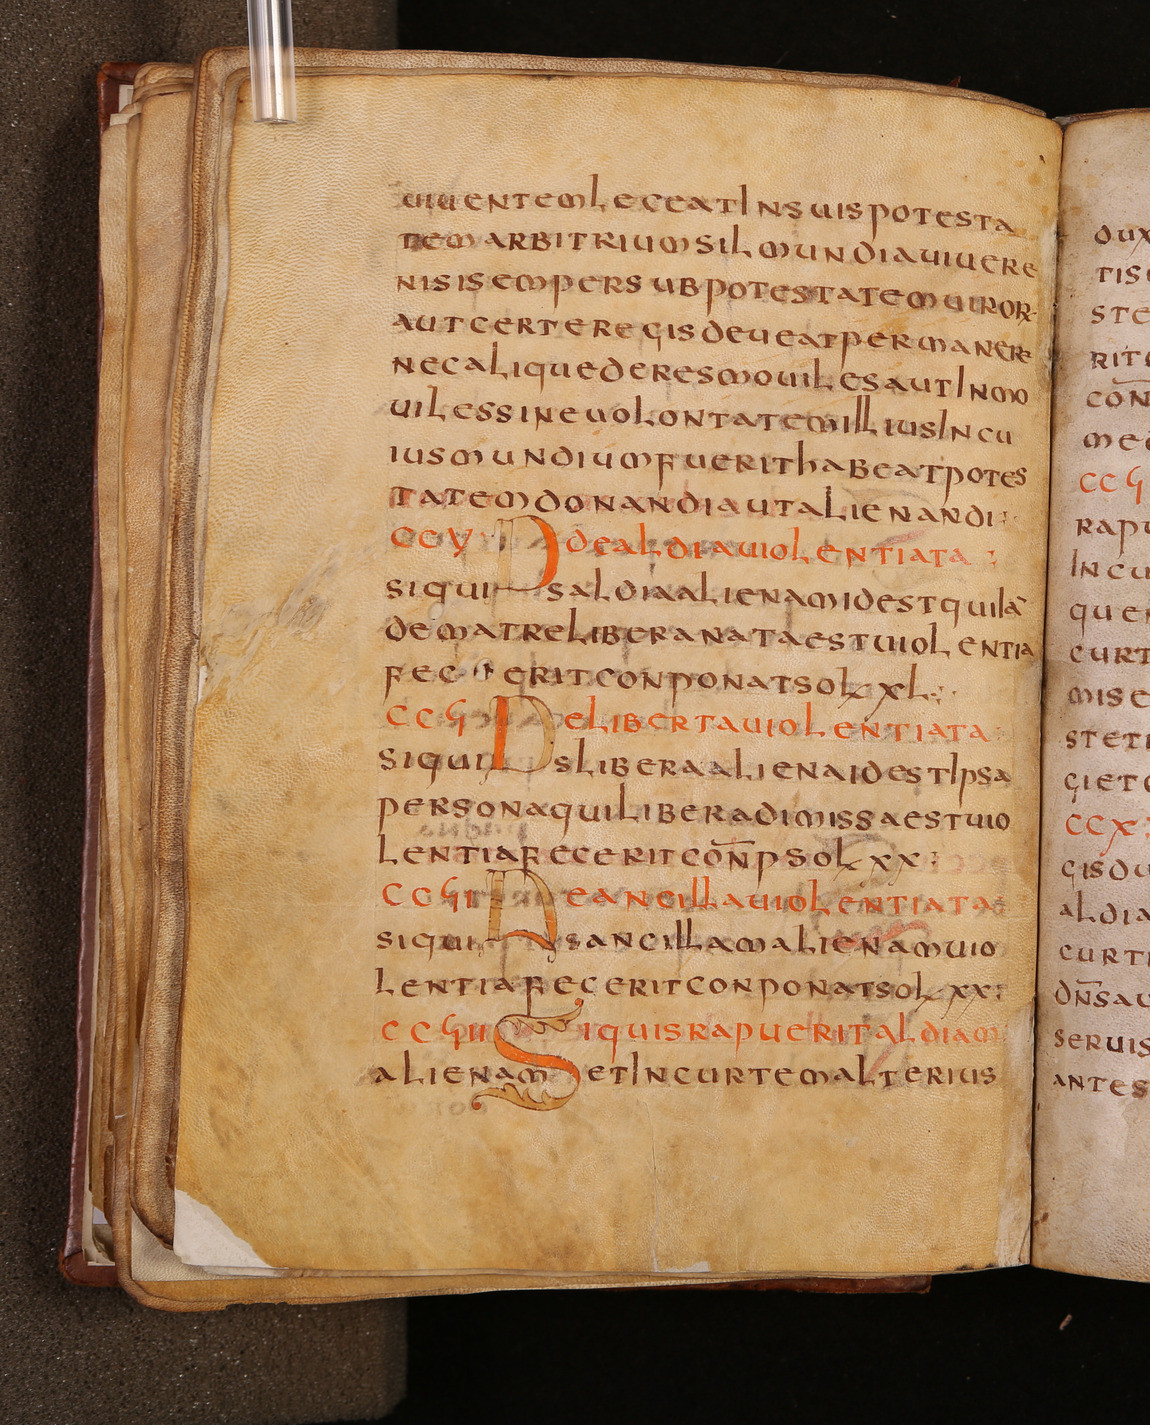 uiuentem leceat in suis potesta
tem arbitrium sil mundia uiuere
nisi semper sub potestatem uiror·
aut certe regis deueat permaner·
nec aliqued e res mouiles aut in mo
uiles sine uolontatem illius in cu
ius mundium fuerit habeat potes
tatem donandi aut alienandi
ccv De aldia uiolentiata
si quis aldia aliena m id est qui iā
de matre libera nata est uiolentia
fecerit conponat sol xl
ccϛ De liberta uiolentiata
si quis libera aliena id est ipsa
persona qui libera dimissa est uio
lentia fecerit con̄p sol xx
ccϛi De ancilla uiolentiata
si quis ancillam alienam uio
lentia fecerit conponat sol xx
ccϛii Si quis rapuerit aldiam
alienam et in curtem alterius
dux
tis
ste
rit
con̄
med
ccϛ
rapu
in cu
quer
curt
mise
stet
giet
ccx
gis du
aldia
curt
dn̄s au
seruis
antes